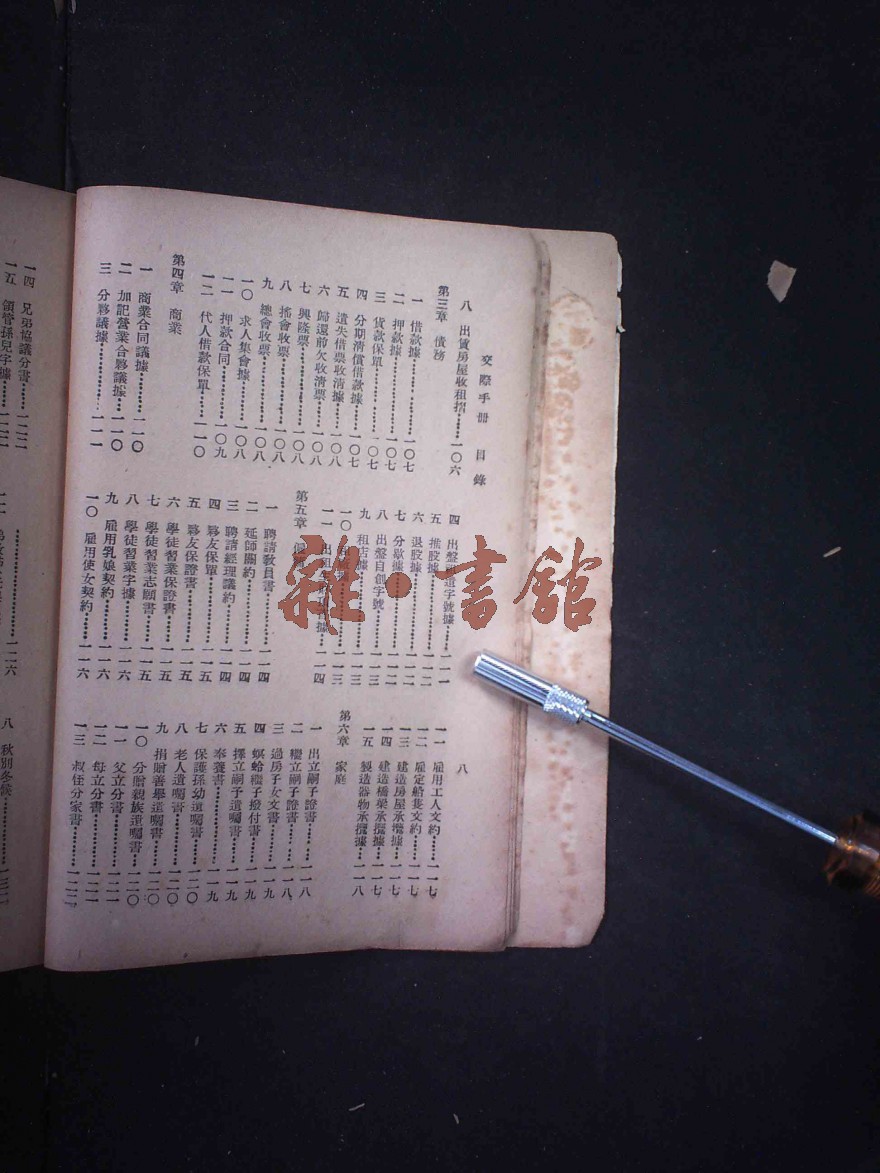 交際手冊 目錄
八 出賃房屋收租摺⋯⋯一〇六
第三章 債務
一 借款據⋯⋯一〇七
二 押款據⋯⋯一〇七
三 貨款保單⋯⋯一〇七
四 分期清償借款據⋯⋯一〇七
五 遺失借票收清據⋯⋯一〇八
六 歸還前欠收清票⋯⋯一〇八
七 興隆票⋯⋯一〇八
八 搖會收票⋯⋯一〇八
九 總會收票⋯⋯一〇八
一〇 求人集會據⋯⋯一〇八
一一 押款合同⋯⋯一〇九
一二 代人借款保單⋯⋯一一〇
第四章 商業
一 商業合同議據⋯⋯一一〇
二 加記營業合夥議據⋯⋯一一〇
三 分夥議據⋯⋯一一一
四 出盤 字號據⋯⋯一一一
五 推股據⋯⋯一一二
六 退股據⋯⋯一一二
七 分歇據⋯⋯一一二
八 出盤自創字號⋯⋯一一三
九 租店據⋯⋯一一三
一〇 ⋯⋯一一三
一一 出租 據⋯⋯一一四
第五章
一 聘請教員書⋯⋯一一四
二 延師關約⋯⋯一一四
三 聘請經理議約⋯⋯一一四
四 夥友保單⋯⋯一一五
五 夥友保證書⋯⋯一一五
六 學徒習業保證書⋯⋯一一五
七 學徒習業志願書⋯⋯一一五
八 學徒習業字據⋯⋯一一六
九 雇用乳娘契約⋯⋯一一六
一〇 雇用使女契約⋯⋯一一六
八
一一 雇用工人文約⋯⋯一一七
一二 雇定船隻文約⋯⋯一一七
一三 建造房屋承攬據⋯⋯一一七
一四 建造橋梁承攬據⋯⋯一一七
一五 製造器物承攬據⋯⋯一一八
第六章 家庭
一 出立嗣子證書⋯⋯一一八
二 繼立嗣子證書⋯⋯一一八
三 過房子女文書⋯⋯一一九
四 螟蛉繼子撥付書⋯⋯一一九
五 擇立嗣子遺囑書⋯⋯一一九
六 奉養書⋯⋯一一九
七 保護孫幼遺囑書⋯⋯一二〇
八 老人遺囑書⋯⋯一二〇
九 捐贈善舉遺囑書⋯⋯一二〇
一〇 分贈親族遺囑書⋯⋯一二〇
一一 父立分書⋯⋯一二一
一二 母立分書⋯⋯一二一
一三 叔侄分家書⋯⋯一二二
一四 兄弟協議分書⋯⋯一二二
一五 領管孫兒字據⋯⋯一二二
一二六
八 秋別冬候⋯⋯一三一
雜·書館